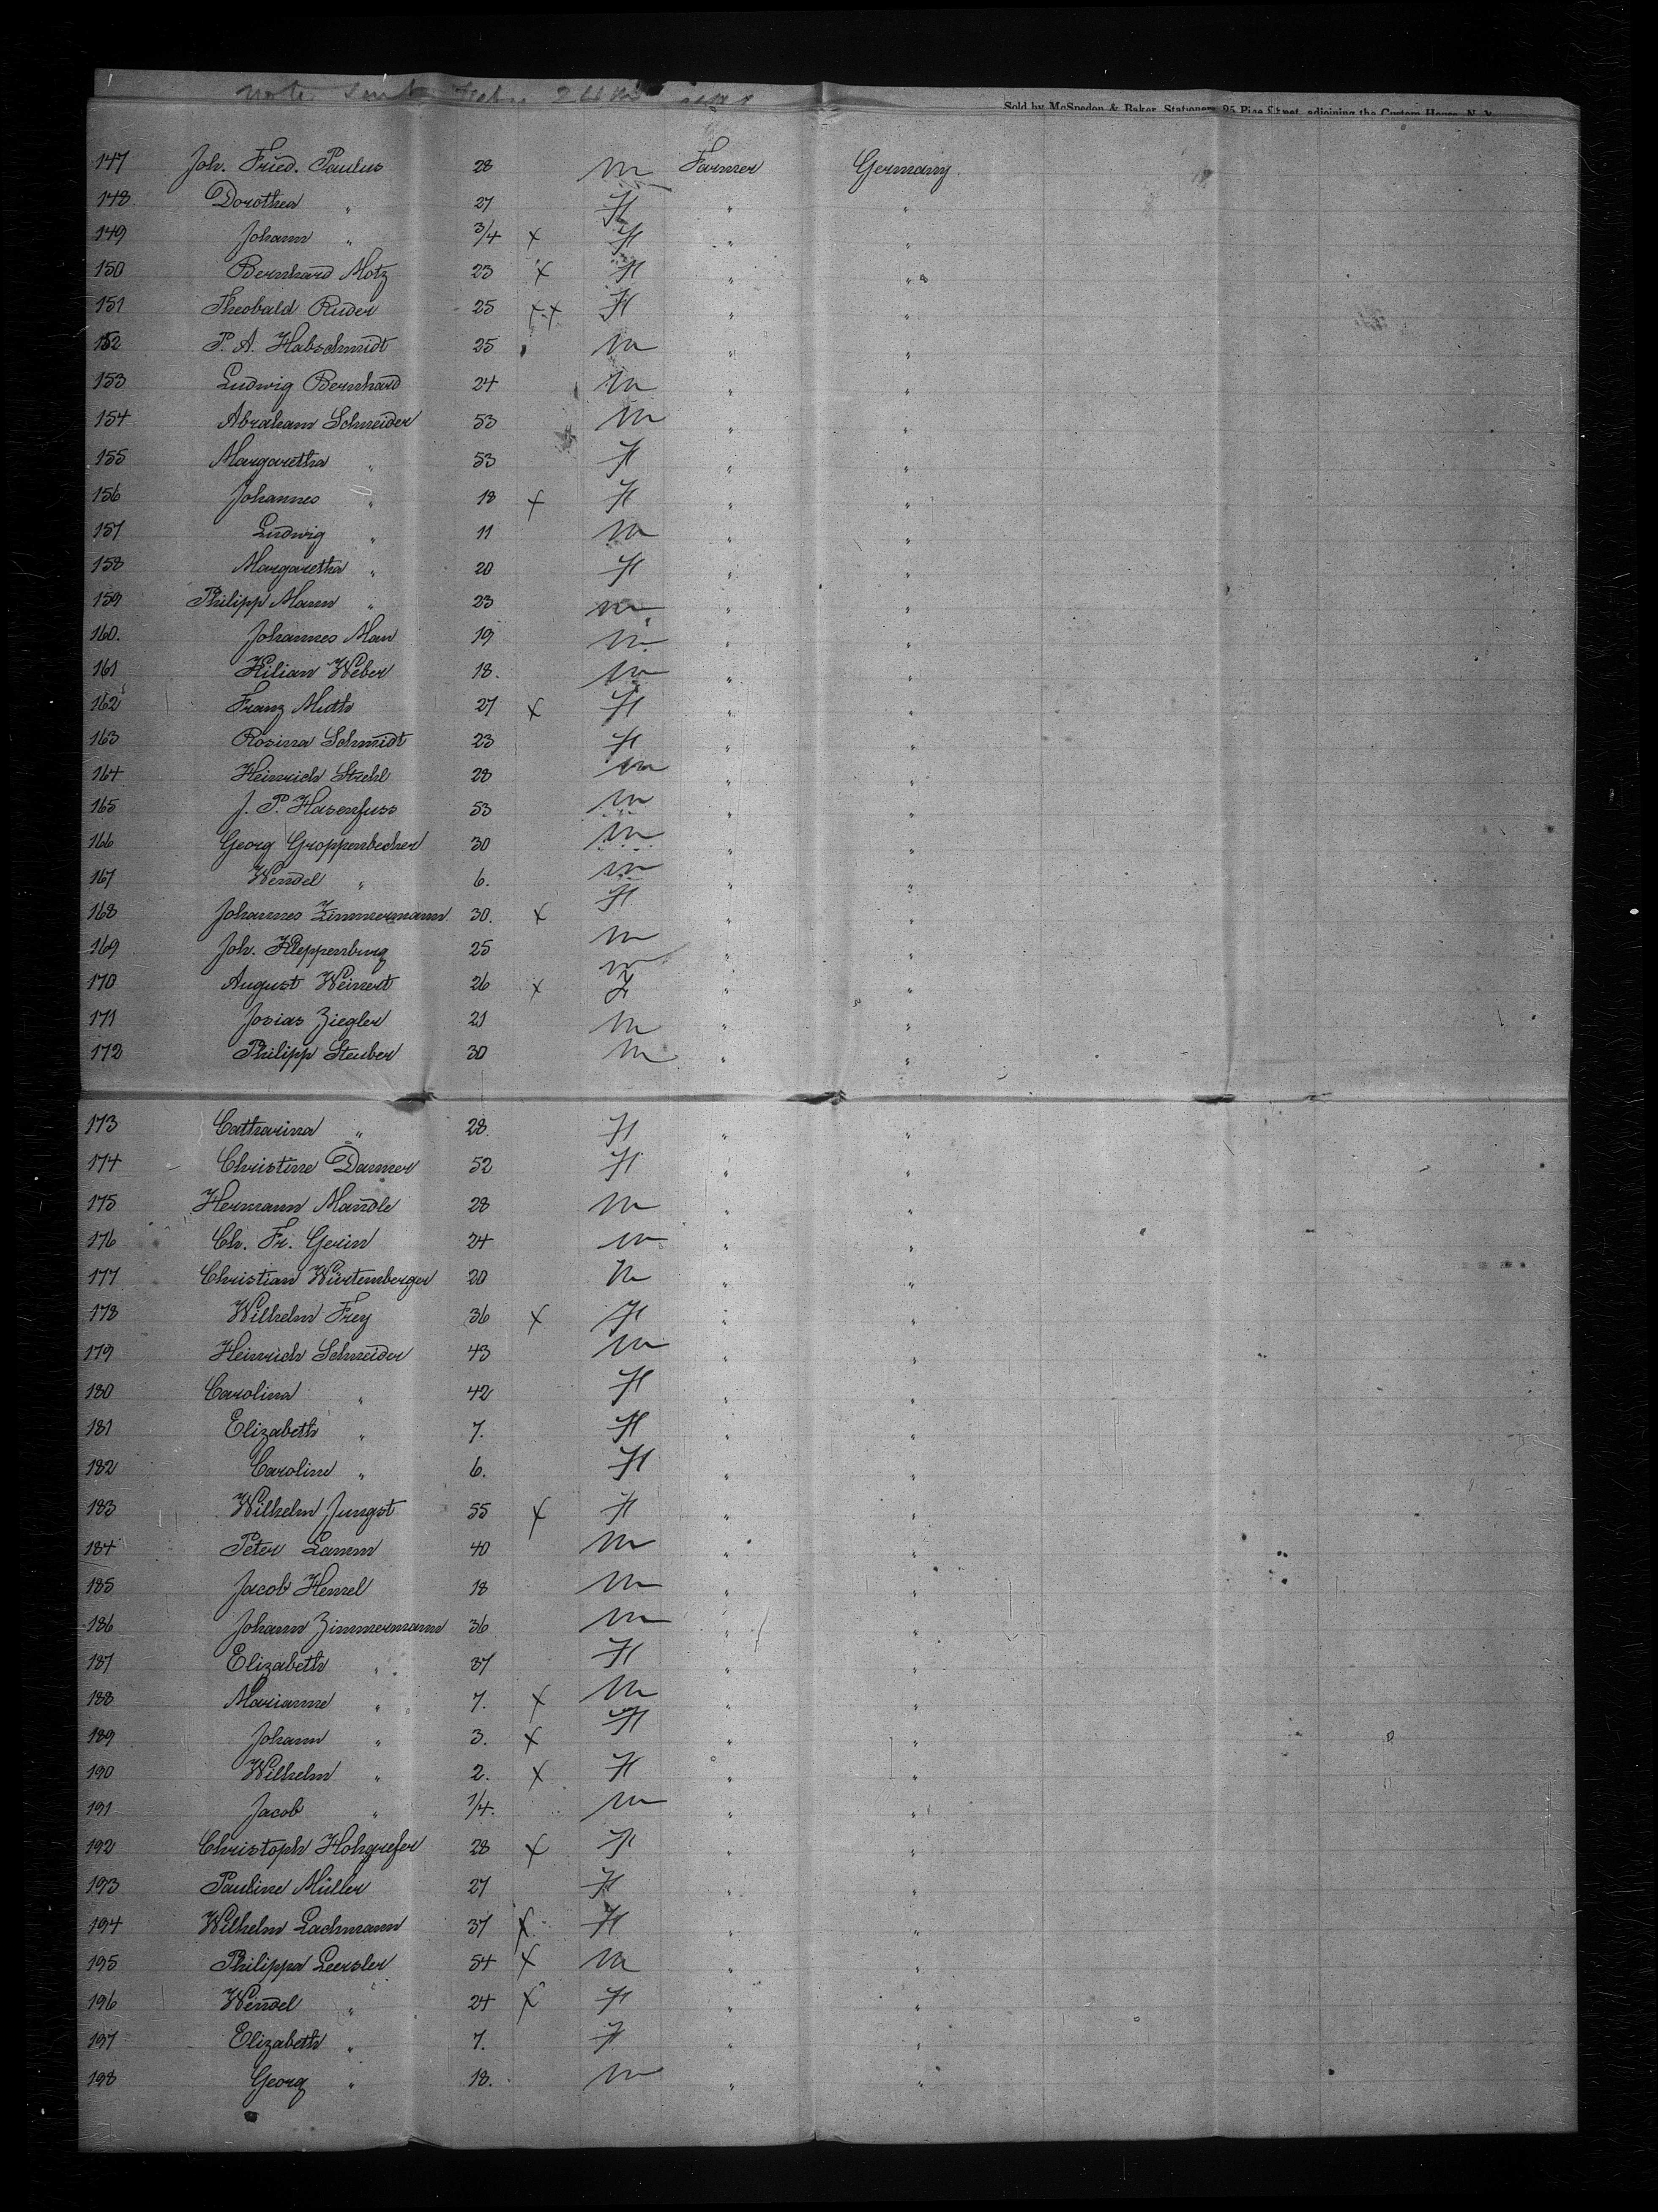 note sent Feby 24th
Sold by McSpedon & Baker, Stationers, 25 Pine Street, adjoining the Custom House, N. Y.
147 Joh. Fried. Paulus 28 M Farmer Germany.
148 Dorothea " 27 F " "
149 Johann " 3/4 x F " "
150 Bernhard Motz 23 x F " "
151 Theobald Ruder 25 x x F " "
152 P. A. Habschmidt 25 M " "
153 Ludwig Bernhard 24 M " "
154 Abraham Schneider 53 M " "
155 Margaretha " 53 F " "
156 Johannes " 18 x F " "
157 Ludwig " 11 M " "
158 Margaretha " 20 F " "
159 Philipp Mann " 23 M " "
160. Johannes Man 19 M " "
161 Kilian Weber 18. M " "
162 Franz Muth 27 x F " "
163 Rosina Schmidt 23 F " "
164 Heinrich Strehl 28 M " "
165 J. P. Hasenfuss 53 M " "
166 Georg Groppenbecher 30 M " "
167 Wendel " 6. M " "
168 Johannes Zimmermann 30. x F " "
169 Joh. Kleppenburg 25 M " "
170 August Weinert 26 x F " "
171 Josias Ziegler 21 M " "
172 Philipp Steuber 30 M " "
173 Catharina " 28. F " "
174 Christine Danner 52 F " "
175 Hermann Mandle 28 M " "
176 Ch. Fr. Gerin 24 M " "
177 Christian Würtemberger 20 M " "
178 Wilhelm Frey 36 x F " "
179 Heinrich Schneider 43 M " "
180 Carolina " 42 F " "
181 Elizabeth " 7. F " "
182 Caroline " 6. F " "
183 Wilhelm Jungst 55 x F " "
184 Peter Lamm 40 M " "
185 Jacob Hensel 18 M " "
186 Johann Zimmermann 36 M " "
187 Elizabeth " 37 F " "
188 Marianne " 7. x M " "
189 Johann " 3. x F " "
190 Wilhelm " 2. x F " "
191 Jacob " 1/4. M " "
192 Christoph Hohgrefer 28 x F " "
193 Pauline Müller 27 F " "
194 Wilhelm Lachmann 37 x F " "
195 Philippa Leersler 54 x M " "
196 Wendel " 24 x F " "
197 Elizabeth " 7. F " "
198 Georg " 18. M " "